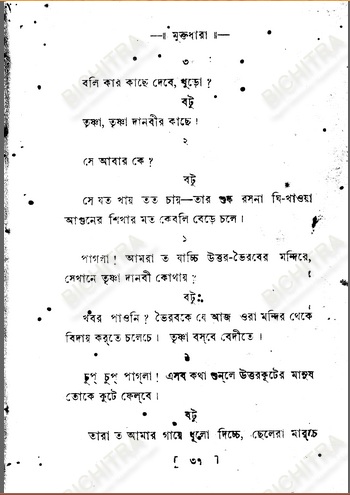 —॥ মুক্তধারা ॥—
৩
বলি কার কাছে দেবে, খুড়ো ?
বটু
তৃষ্ণা, তৃষ্ণা দানবীর কাছে।
২
সে আবার কে ?
বটু
সে যত খায় তত চায়—তার শুষ্ক রসনা ঘি-খাওয়া
আগুনের শিখার মত কেবলি বেড়ে চলে।
১
পাগলা! আমরা ত যাচ্চি উত্তর-ভৈরবের মন্দিরে,
সেখানে তৃষ্ণা দানবী কোথায় ?
বটু
খবর পাওনি ? ভৈরবকে যে আজ ওরা মন্দির থেকে
বিদায় করতে চলেচে। তৃষ্ণা বস্‌বে বেদীতে।
চুপ্ চুপ্ পাগ্‌লা! এসব কথা শুন্‌লে উত্তরকূটের মানুষ
তোকে কুটে ফেল্‌বে।
বটু
তারা ত আমার গায়ে ধুলো দিচ্চে, ছেলেরা মারচে
[ ৩৭ ]
BICHITRA